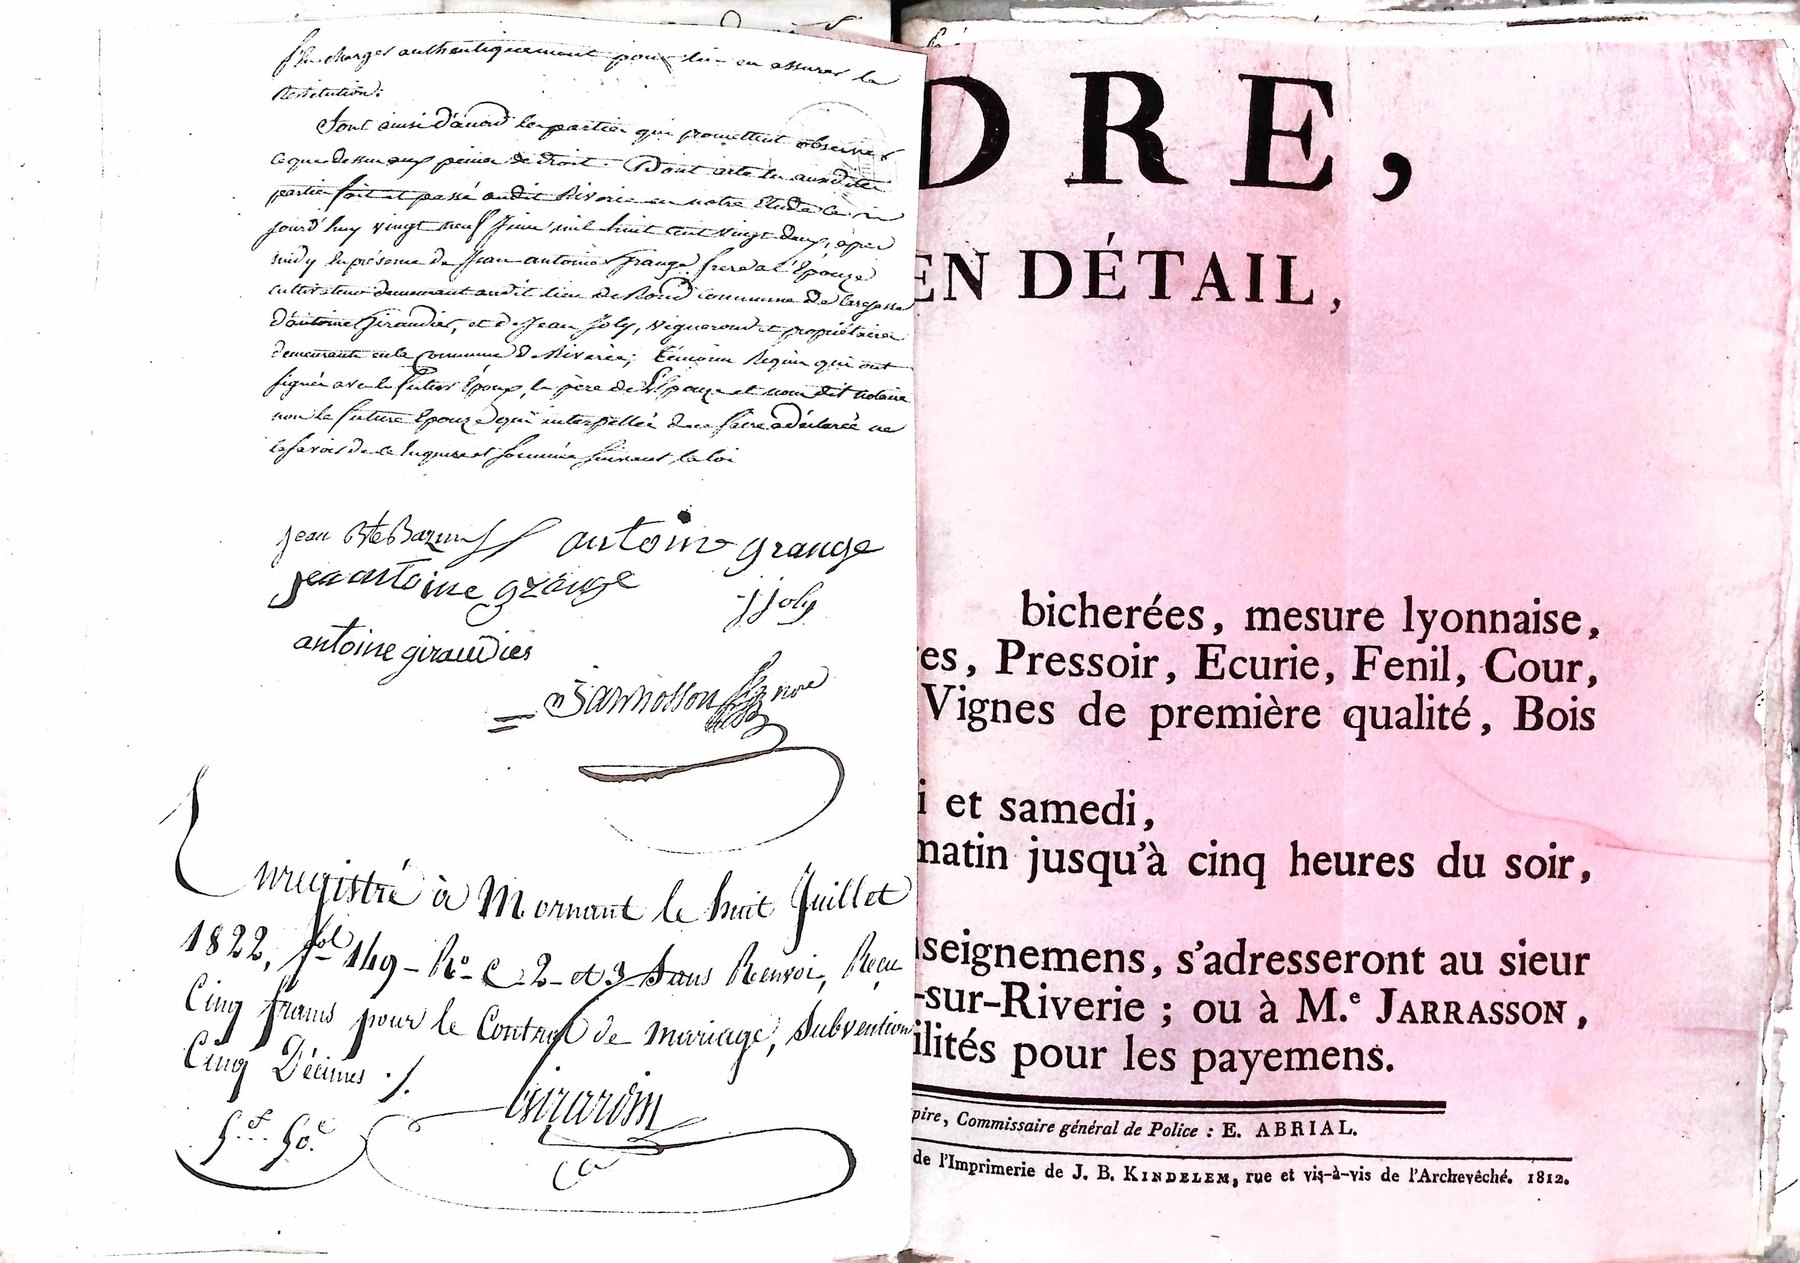 charges authentiquement pour lui en assurer la
Restitution.
Sont ainsi d'accord les parties qui promettent observer
ce que dessus aux peines de droit. Dont acte lu auxdites
parties fait et passé audit Riverie en notre Etude ce
jourd'huy vingt neuf Juin mil huit cent vingt deux, après
midy en présence de Jean antoine Grange frere a l'Epouze
cultivateur demeurant audit lieu de commune de
d'antoine Giraudier, et de Jean Joly, vigneron et propriétaire
demeurants en la Commune de Riverie; témoins Requis qui ont
signé avec le futur Epoux, le père de l'Epouze et nous dit notaire
non la future Epouze qui interpellée de ce faire a déclaré ne
le savoir de ce Enquise et sommée suivant la loi
jean Bte antoine grange
jean antoine grange j joly
antoine giraudier
Jarrosson nre
Enregistré à Mornant le huit Juillet
1822, fol 149 Ro C 2 et 3 Sans Renvoi, Reçu
Cinq francs pour le Contrat de mariage, Subvention
Cinq Décimes ./.
5.f 50.c
Girardin
DRE,
EN DÉTAIL,
bicherées, mesure lyonnaise,
es, Pressoir, Ecurie, Fenil, Cour,
Vignes de première qualité, Bois
i et samedi,
matin jusqu'à cinq heures du soir,
seignemens, s'adresseront au sieur
-sur-Riverie ; ou à M.e JARRASSON,
ilités pour les payemens.
pire, Commissaire général de Police : E. ABRIAL.
de l'Imprimerie de J. B. KINDELEM, rue et vis-à-vis de l'Archevêché. 1812.